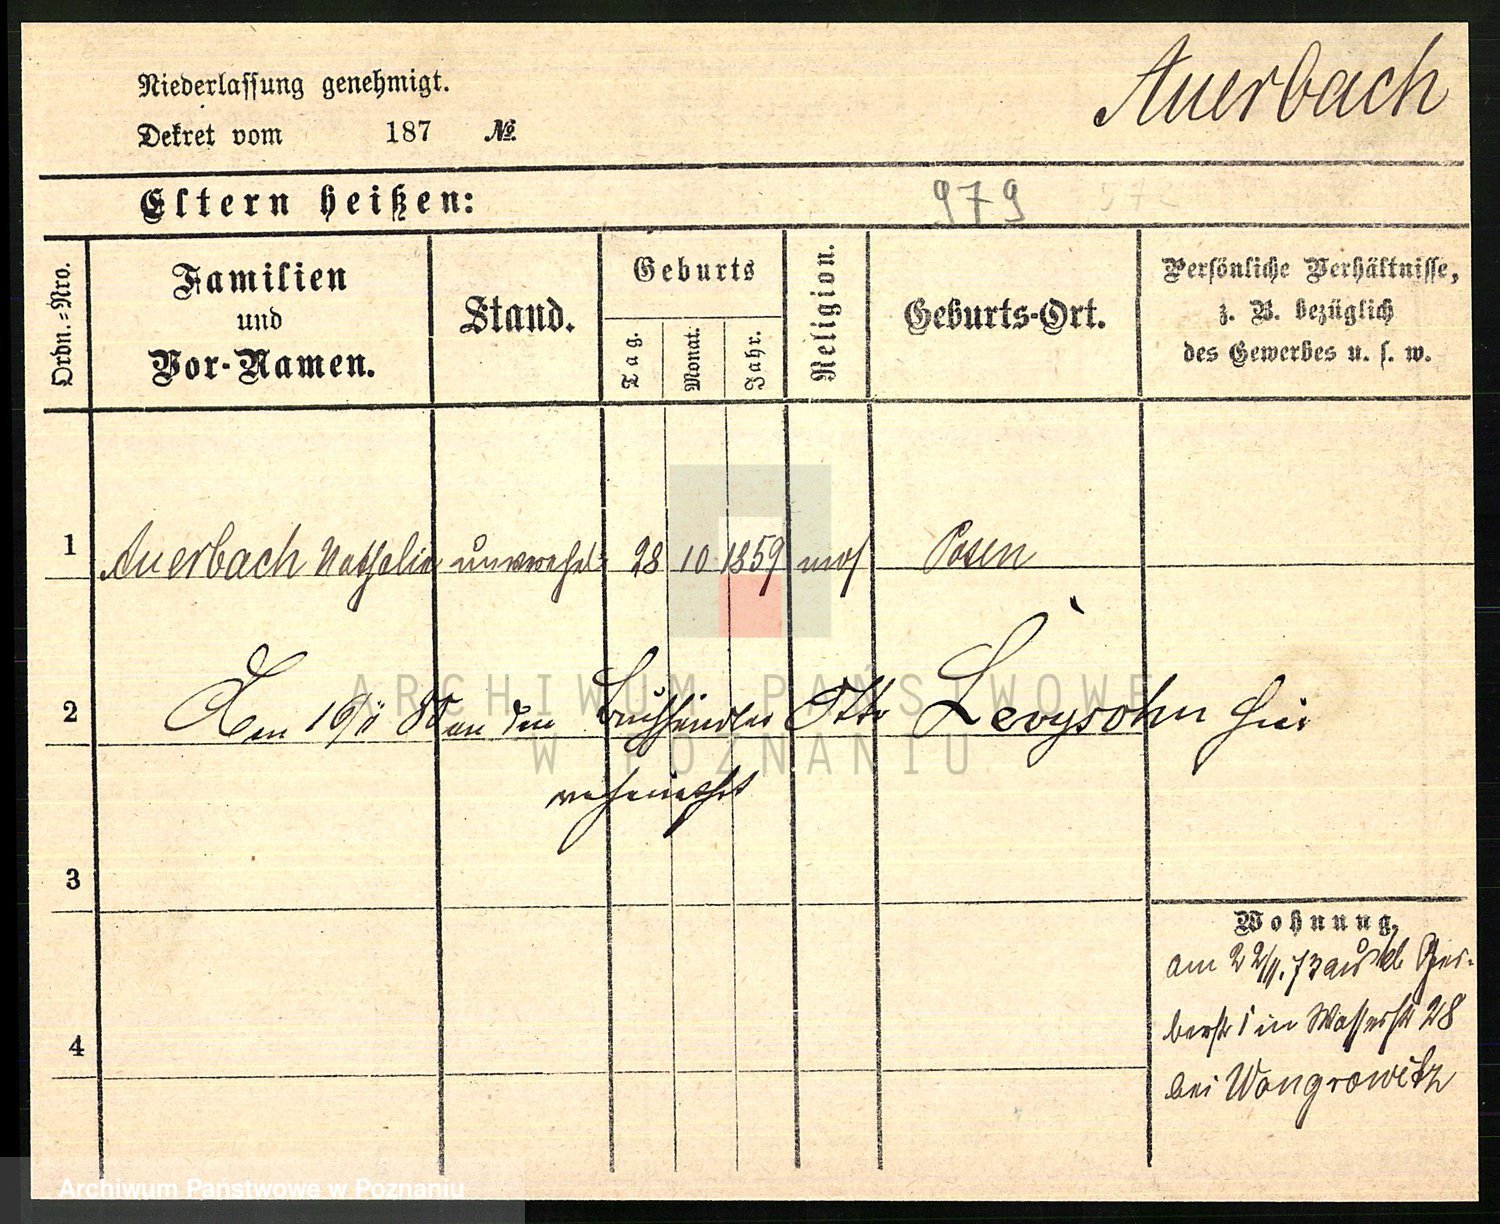 Auerbach
Niederlassung genehmigt.
Dekret vom 187 №
Eltern heißen:
979
Ordn.=Nro.
Familien
und
Vor-Namen.
Stand.
Geburts
Tag.
Monat.
Jahr.
Religion.
Geburts-Ort.
Persönliche Verhältnisse,
z. B. bezüglich
des Gewerbes u. s. w.
1 Auerbach Nathalie unverehel. 28 10 1859 mos Posen
2 Am 16/11 80 an den Buchhändler Otto Levysohn hier
verheirathet
3
Wohnung,
am 22/11.73 aus kl Ger-
berstr 1 in Wasserstr 28
bei Wongrowitz
4
ARCHIWUM PAŃSTWOWE
W POZNANIU
Archiwum Państwowe w Poznaniu